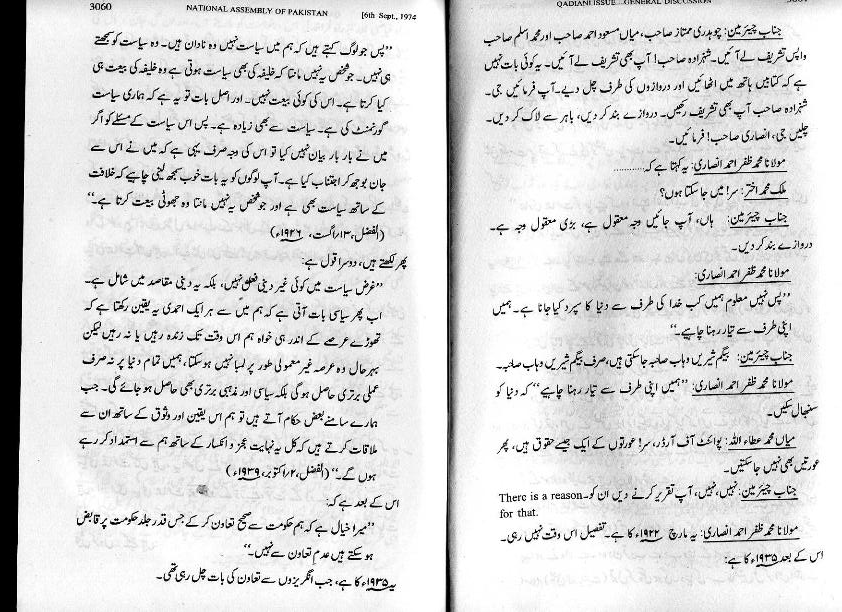 3060
NATIONAL ASSEMBLY OF PAKISTAN
[6th Sept., 1974
”پس جو لوگ کہتے ہیں کہ ہم میں سیاست نہیں وہ نادان ہیں۔ وہ سیاست کو سمجھتے
ہی نہیں۔ جو شخص یہ نہیں مانتا کہ خلیفہ کی بھی سیاست ہوتی ہے وہ خلیفہ کی بیعت ہی
کیا کرتا ہے۔ اس کی کوئی بیعت نہیں۔ اور اصل بات تو یہ ہے کہ ہماری سیاست
گورنمنٹ کی ہے۔ سیاست سے بھی زیادہ ہے۔ پس اس سیاست کے مسئلے کو اگر
میں نے بار بار بیان نہیں کیا تو اس کی وجہ صرف یہی ہے کہ میں نے اس سے
جان بوجھ کر اجتناب کیا ہے۔ آپ لوگوں کو یہ بات خوب سمجھ لینی چاہیے کہ خلافت
کے ساتھ سیاست بھی ہے اور جو شخص یہ نہیں مانتا وہ جھوٹی بیعت کرتا ہے۔“
(الفضل، ۱۳/اگست، ۱۹۲۶ء)
پھر لکھتے ہیں، دوسرا قول ہے:
”غرض سیاست میں کوئی غیر دینی تعلق نہیں، بلکہ یہ دینی مقاصد میں شامل ہے۔
اب پھر سیاسی بات آتی ہے کہ ہم میں سے ہر ایک احمدی یہ یقین رکھتا ہے کہ
تھوڑے عرصے کے اندر ہی خواہ ہم اس وقت تک زندہ رہیں یا نہ رہیں لیکن
بہرحال وہ عرصہ غیر معمولی طور پر لمبا نہیں ہو سکتا، ہمیں تمام دنیا پر نہ صرف
عملی برتری حاصل ہو گی بلکہ سیاسی اور مذہبی برتری بھی حاصل ہو جائے گی۔ جب
ہمارے سامنے بعض حکام آتے ہیں تو ہم اس یقین اور وثوق کے ساتھ ان سے
ملاقات کرتے ہیں کہ کل یہ نہایت عجز و انکسار کے ساتھ ہم سے استمداد کر رہے
ہوں گے۔“ (الفضل، ۲/اکتوبر، ۱۹۳۹ء)
اس کے بعد ہے کہ:
”میرا خیال ہے کہ ہم حکومت سے صحیح تعاون کر کے جس قدر جلد حکومت پر قابض
ہو سکتے ہیں عدم تعاون سے نہیں۔“
یہ ۱۹۳۵ء کا ہے، جب انگریزوں سے تعاون کی بات چل رہی تھی۔
QADIANI ISSUE—GENERAL DISCUSSION
جناب چیئرمین: چوہدری ممتاز صاحب، میاں مسعود احمد صاحب اور محمد اسلم صاحب
واپس تشریف لے آئیں۔ شہزادہ صاحب! آپ بھی تشریف لے آئیں۔ یہ کوئی بات نہیں
ہے کہ کتابیں ہاتھ میں اٹھائیں اور دروازوں کی طرف چل دیے۔ آپ فرمائیں جی۔
شہزادہ صاحب آپ بھی تشریف رکھیں۔ دروازے بند کر دیں، باہر سے لاک کر دیں۔
چلیں جی، انصاری صاحب! فرمائیں۔
مولانا محمد ظفر احمد انصاری: یہ کہتا ہے کہ............
ملک محمد اختر: سر! میں جا سکتا ہوں؟
جناب چیئرمین: ہاں، آپ جائیں وجہ معقول ہے، بڑی معقول وجہ ہے۔
دروازے بند کر دیں۔
مولانا محمد ظفر احمد انصاری:
”پس نہیں معلوم ہمیں کب خدا کی طرف سے دنیا کا سپرد کیا جانا ہے۔ ہمیں
اپنی طرف سے تیار رہنا چاہیے۔“
جناب چیئرمین: بیگم شیریں وہاب صاحبہ جا سکتی ہیں، صرف بیگم شیریں وہاب صاحبہ۔
مولانا محمد ظفر احمد انصاری: ”ہمیں اپنی طرف سے تیار رہنا چاہیے“ کہ دنیا کو
سنبھال سکیں۔
میاں محمد عطاء اللہ: پوائنٹ آف آرڈر، سر! عورتوں کے ایک جیسے حقوق ہیں، پھر
عورتیں بھی نہیں جا سکتیں۔
جناب چیئرمین: نہیں، نہیں، آپ تقریر کرنے دیں ان کو۔ There is a reason
for that.
مولانا محمد ظفر احمد انصاری: یہ مارچ ۱۹۲۲ء کا ہے۔ تفصیل اس وقت نہیں رہی۔
اس کے بعد ۱۹۳۵ء کا ہے: